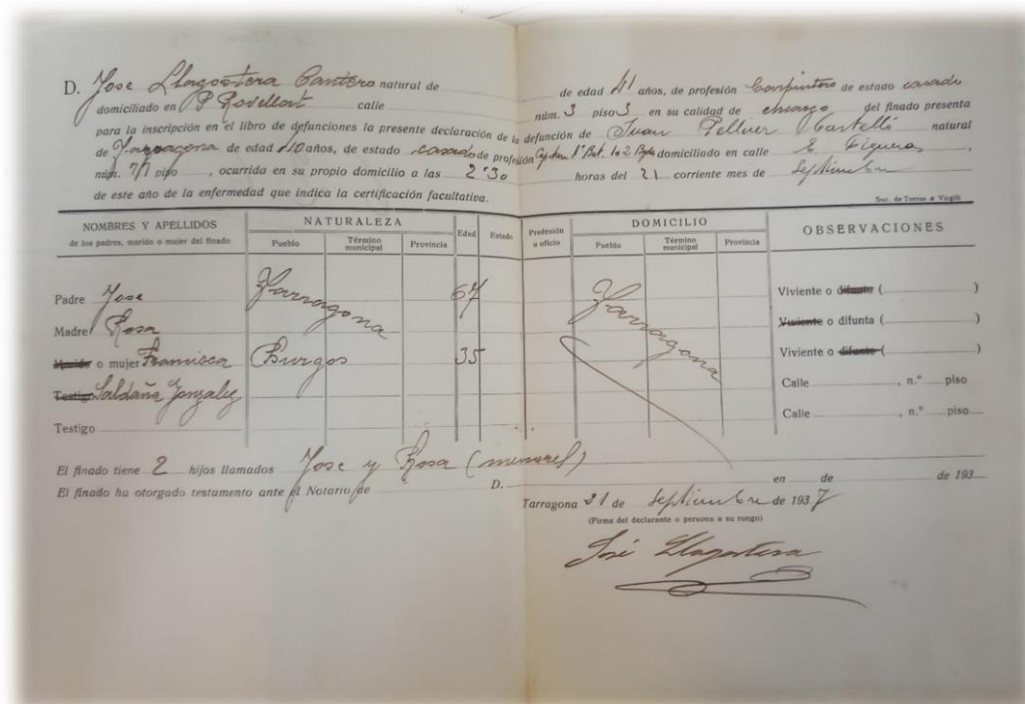 D. Jose Llagostera Cantero natural de de edad 41 años, de profesión Carpintero de estado casado
domiciliado en P Rovellat calle núm. 3 piso 3 en su calidad de encargo del finado presenta
para la inscripción en el libro de defunciones la presente declaración de la defunción de Juan Pellicer Martelli natural
de Tarragona de edad 40 años, de estado casado de profesión Capitan 1º Bat. 1a 2 Bgda domiciliado en calle E Figueras,
núm. 7/1 piso , ocurrida en su propio domicilio a las 2'30 horas del 21 corriente mes de Septiembre
de este año de la enfermedad que indica la certificación facultativa.
Suc. de Torres & Virgili
NOMBRES Y APELLIDOS NATURALEZA Edad Estado Profesión DOMICILIO OBSERVACIONES
de los padres, marido o mujer del finado Pueblo Término municipal Provincia u oficio Pueblo Término municipal Provincia
Padre Jose Tarragona 67 Tarragona Viviente o difunto ( )
Madre Rosa Viviente o difunta ( )
Marido o mujer Francisca Burgos 35 Viviente o difunto ( )
Testigo Saldaña Gonzalez Calle , n.º piso
Testigo Calle , n.º piso
El finado tiene 2 hijos llamados Jose y Rosa (menores)
El finado ha otorgado testamento ante el Notario de D. en de de 193
Tarragona 21 de Septiembre de 1937
(Firma del declarante o persona a su ruego)
José Llagostera